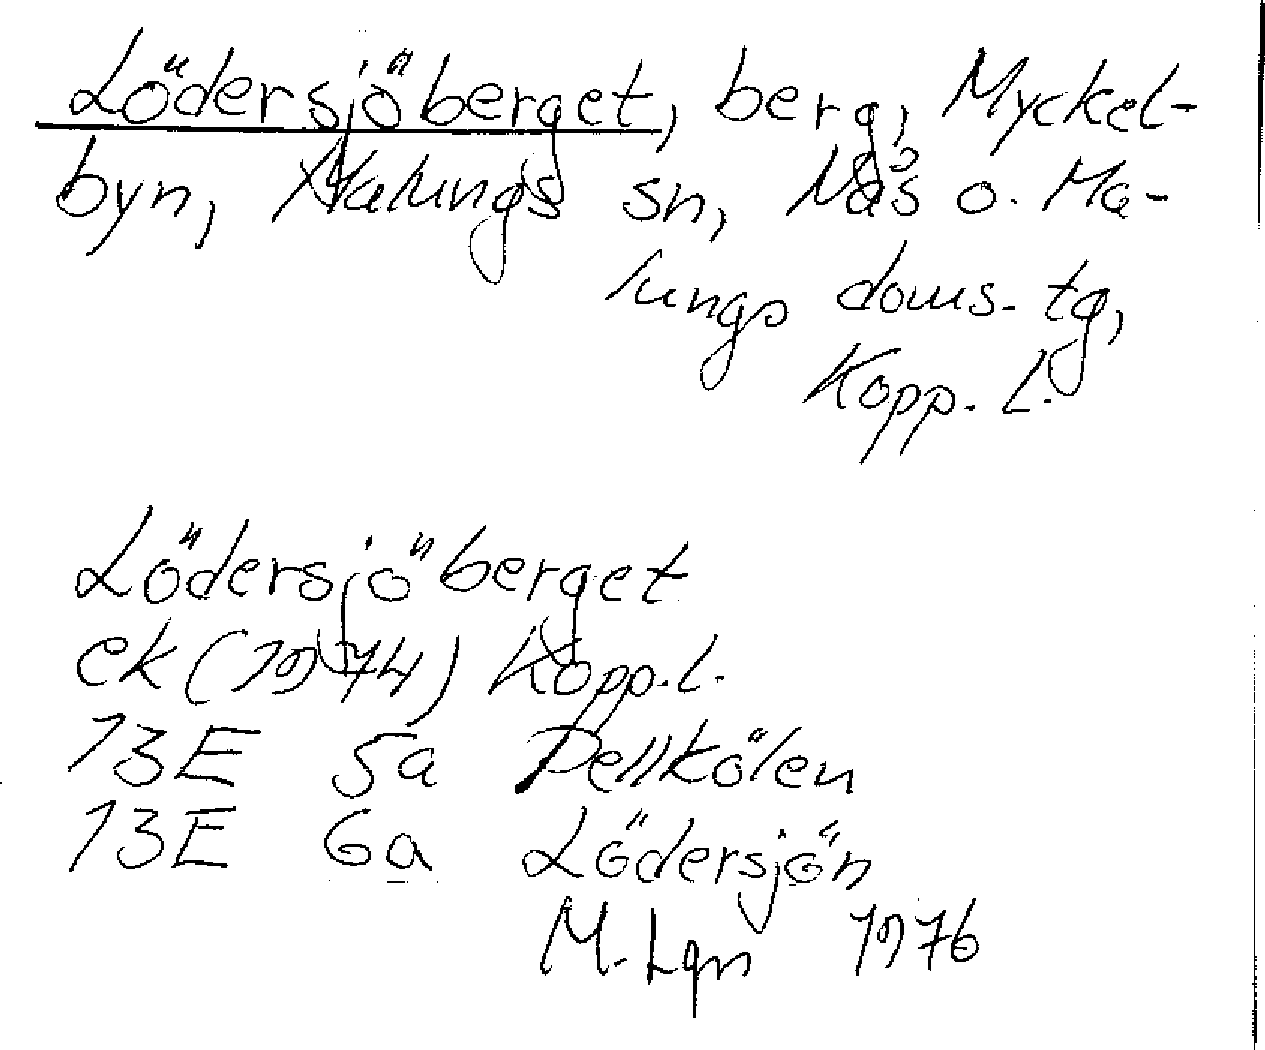 Lödersjöberget, berg, Myckel-
byn, Malungs sn, Nås o. Ma-
lungs doms. tg,
Kopp. l.
Lödersjöberget
ek (1974) Kopp. l.
13E 5a Pellkölen
13E 6a Lödersjön
M. Lgn 1976